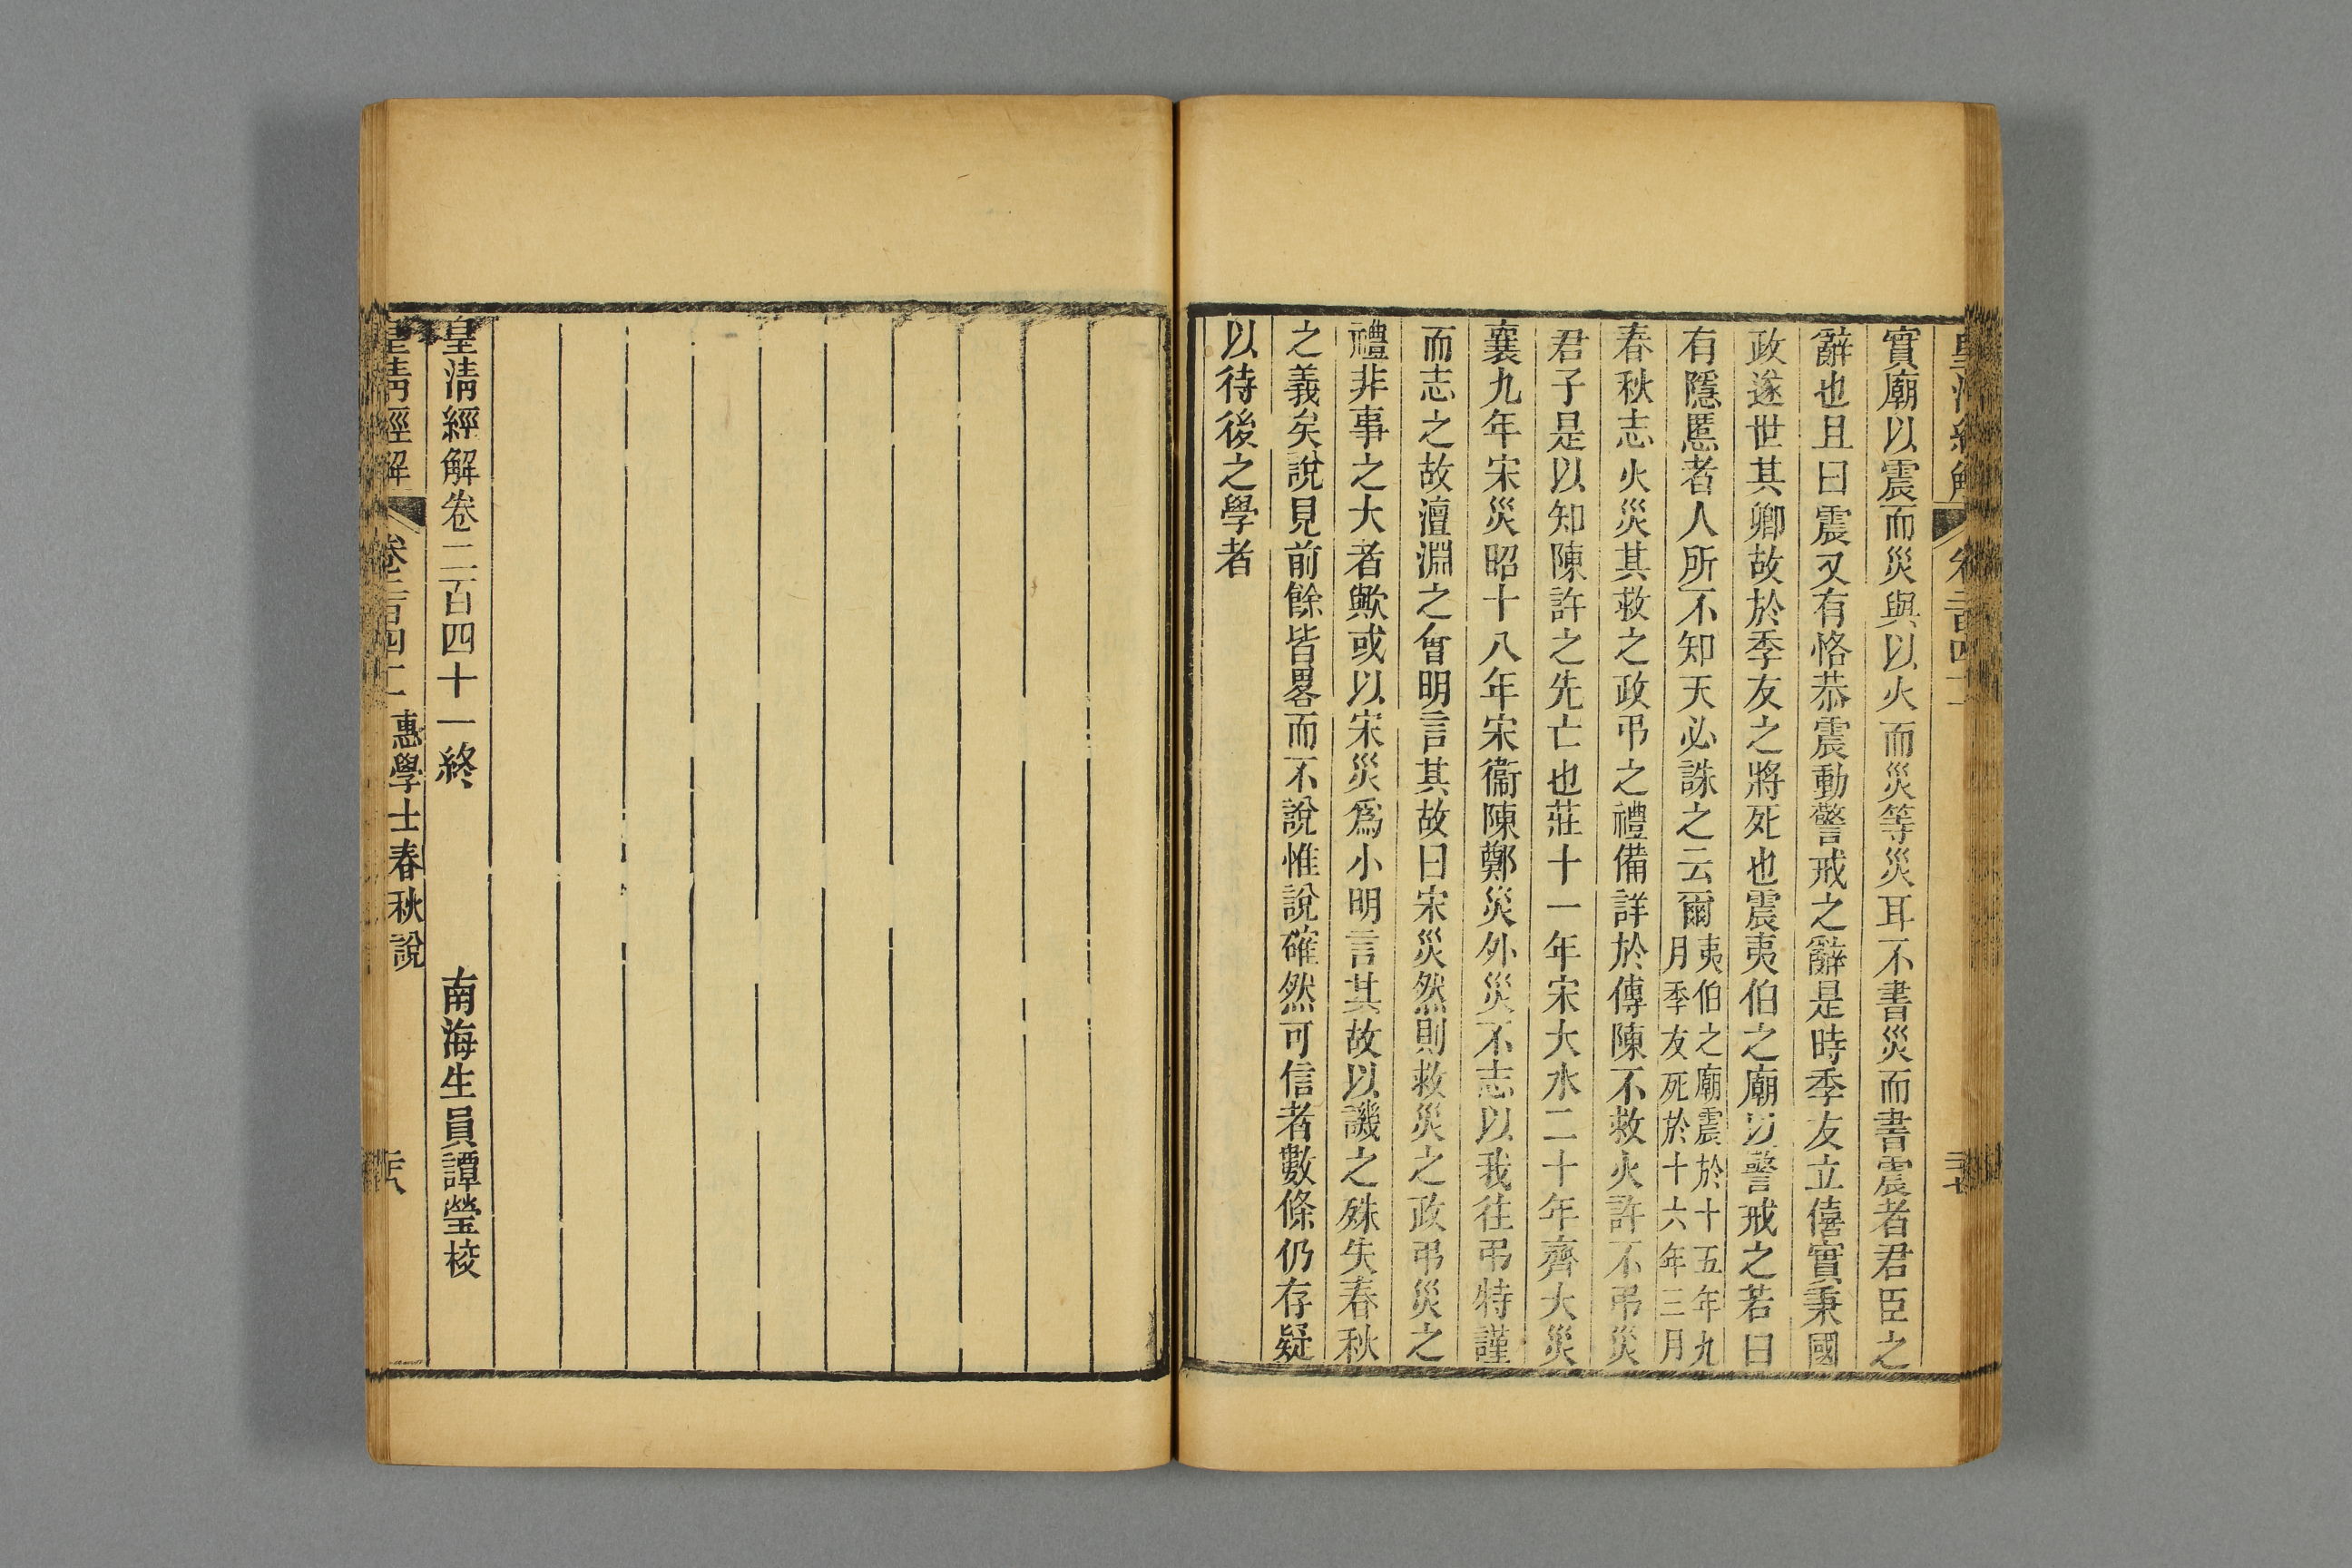 實廟以震而災與以火而災等災耳不書災而書震者君臣之
辭也且曰震又有恪恭震動警戒之辭是時季友立僖實秉國
政遂世其卿故於季友之將死也震夷伯之廟以警戒之若曰
有隱慝者人所不知天必誅之云爾夷伯之廟震於十五年九
月季友死於十六年三月
春秋志火災其救之政弔之禮備詳於傳陳不救火許不弔災
君子是以知陳許之先亡也莊十一年宋大水二十年齊大災
襄九年宋災昭十八年宋衞陳鄭災外災不志以我往弔特謹
而志之故澶淵之會明言其故曰宋災然則救災之政弔災之
禮非事之大者歟或以宋災爲小明言其故以譏之殊失春秋
之義矣說見前餘皆畧而不說惟說確然可信者數條仍存疑
以待後之學者
皇清經解卷二百四十一終 南海生員譚瑩校
皇清經解 卷二百四十一 惠學士春秋說